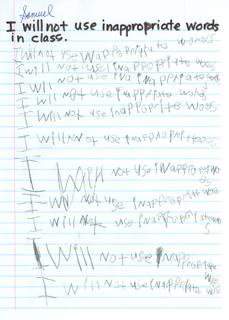 Samuel
I will not use inappropriate words
in class.
I will not use inappropriate words
I will not use inappropriate words
I will not use inappropriate words
I will not use inappropriate words
I will not use inappropriate woods
I will not use inappropriate woods
I will not use inappropriate words
I will not use inappropriate words
I will not use inappropriate words
I will not use inappropriate words
I will not use inappropriate words